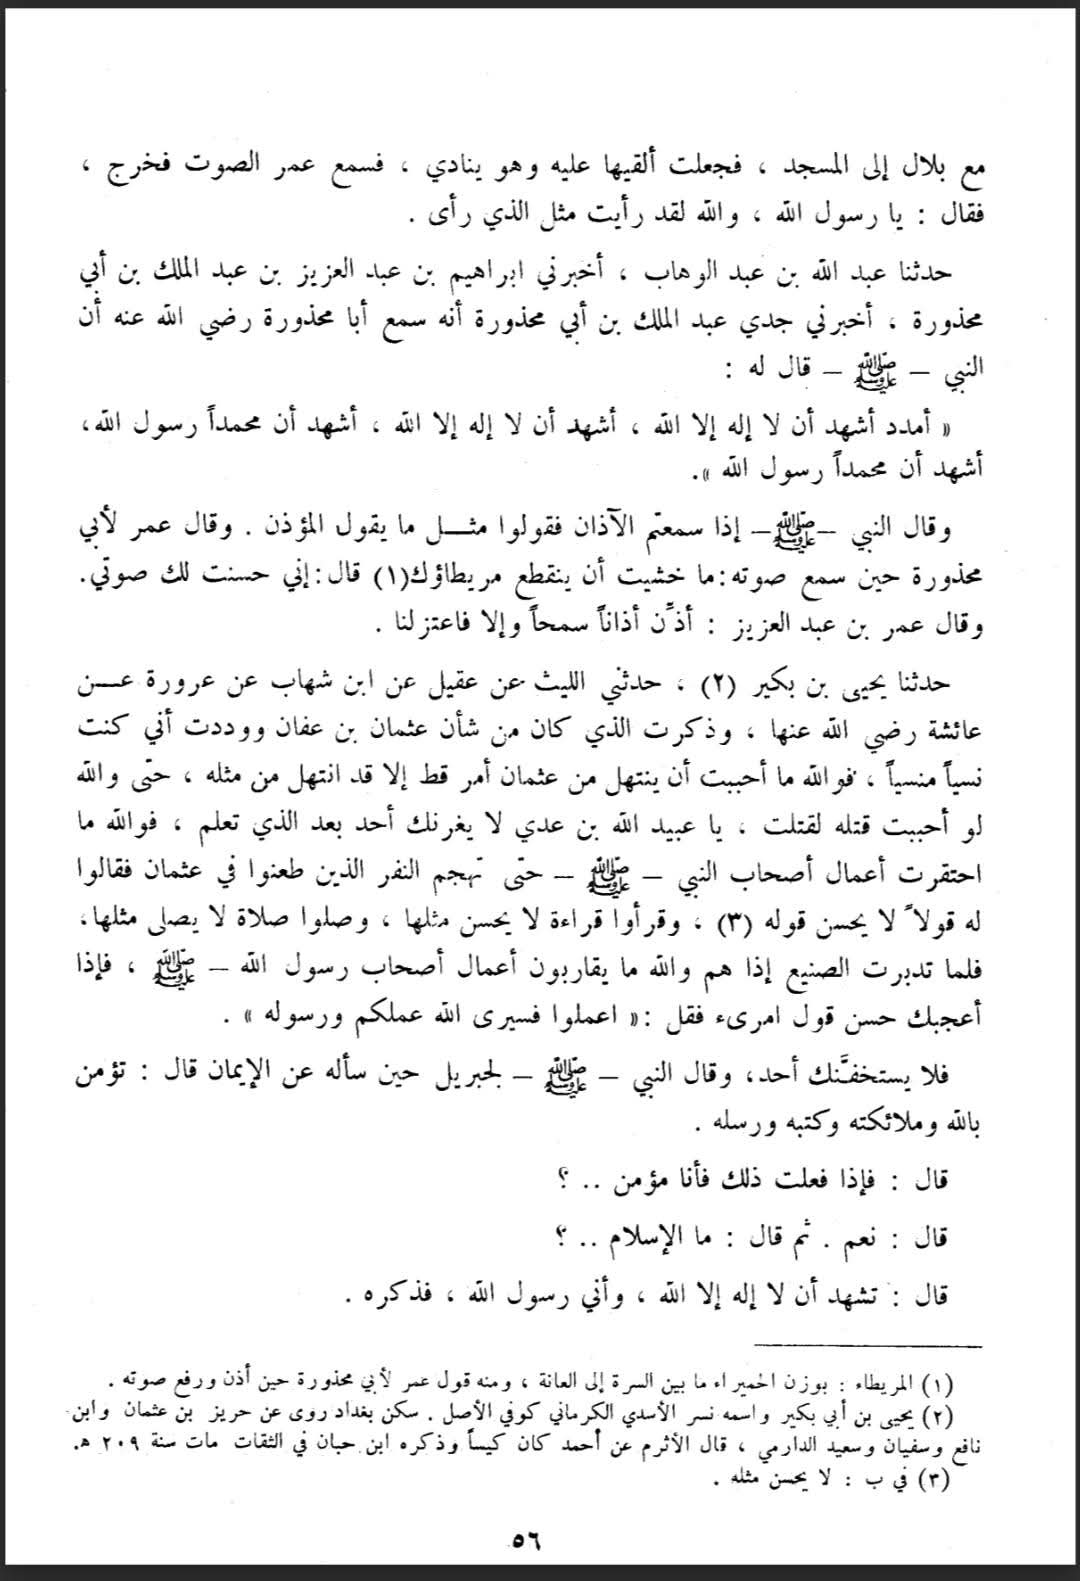 مع بلال إلى المسجد ، فجعلت ألقيها عليه وهو ينادي ، فسمع عمر الصوت فخرج ،
فقال : يا رسول الله ، والله لقد رأيت مثل الذي رأى .
حدثنا عبد الله بن عبد الوهاب ، أخبرني ابراهيم بن عبد العزيز بن عبد الملك بن أبي
محذورة ، أخبرني جدي عبد الملك بن أبي محذورة أنه سمع أبا محذورة رضي الله عنه أن
النبي – ﷺ – قال له :
« أمدد أشهد أن لا إله إلا الله ، أشهد أن لا إله إلا الله ، أشهد أن محمداً رسول الله،
أشهد أن محمداً رسول الله ».
وقال النبي –ﷺ– إذا سمعتم الآذان فقولوا مثل ما يقول المؤذن . وقال عمر لأبي
محذورة حين سمع صوته:ما خشيت أن ينقطع مريطاؤك(١) قال:إني حسنت لك صوتي.
وقال عمر بن عبد العزيز : أذِّن أذاناً سمحاً وإلا فاعتزلنا .
حدثنا يحيى بن بكير (٢) ، حدثني الليث عن عقيل عن ابن شهاب عن عرورة عن
عائشة رضي الله عنها ، وذكرت الذي كان من شأن عثمان بن عفان ووددت أني كنت
نسياً منسياً ، فوالله ما أحببت أن ينتهل من عثمان أمر قط إلا قد انتهل من مثله ، حتى والله
لو أحببت قتله لقتلت ، يا عبيد الله بن عدي لا يغرنك أحد بعد الذي تعلم ، فوالله ما
احتقرت أعمال أصحاب النبي – ﷺ – حتى تهجم النفر الذين طعنوا في عثمان فقالوا
له قولاً لا يحسن قوله (٣) ، وقرأوا قراءة لا يحسن مثلها ، وصلوا صلاة لا يصلى مثلها،
فلما تدبرت الصنيع إذا هم والله ما يقاربون أعمال أصحاب رسول الله – ﷺ ، فإذا
أعجبك حسن قول امرىء فقل :« اعملوا فسيرى الله عملكم ورسوله » .
فلا يستخفَّنك أحد، وقال النبي – ﷺ – لجبريل حين سأله عن الإيمان قال : تؤمن
بالله وملائكته وكتبه ورسله .
قال : فإذا فعلت ذلك فأنا مؤمن .. ؟
قال : نعم . ثم قال : ما الإسلام .. ؟
قال : تشهد أن لا إله إلا الله ، وأني رسول الله ، فذكره .
(١) المريطاء : بوزن الحميراء ما بين السرة إلى العانة ، ومنه قول عمر لأبي محذورة حين أذن ورفع صوته .
(٢) يحيى بن أبي بكير واسمه نسر الأسدي الكرماني كوفي الأصل . سكن بغداد روى عن حريز بن عثمان وابن
نافع وسفيان وسعيد الدارمي ، قال الأثرم عن أحمد كان كيساً وذكره ابن حبان في الثقات مات سنة ٢٠٩ هـ.
(٣) في ب : لا يحسن مثله .
٥٦